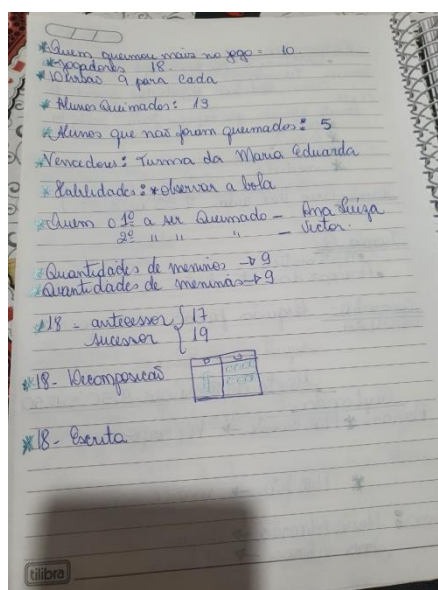 * Quem queimou mais no jogo = 10
* Jogadores 18.
* Divisão 9 para cada
* Alunos Queimados: 13
* Alunos que não foram queimados: 5
* Vencedores: Turma da Maria Eduarda
* Habilidades: * observar a bola
* Quem o 1º a ser Queimado - Ana Luíza
2º " " " - Victor.
* Quantidades de meninos → 9
* Quantidades de meninas → 9
* 18 - antecessor { 17
sucessor { 19
* 18 - Decomposição
D U
* 18 - Escrita
tilibra